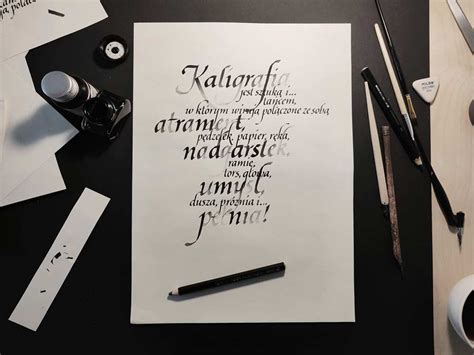 Kaligrafia
jest sztuką i...
tańcem,
w którym wirują połączone ze sobą
atrament,
pędzelek, papier, ręka,
nadgarstek,
ramię,
tors, głowa,
umysł,
dusza, próżnia i...
pełnia!